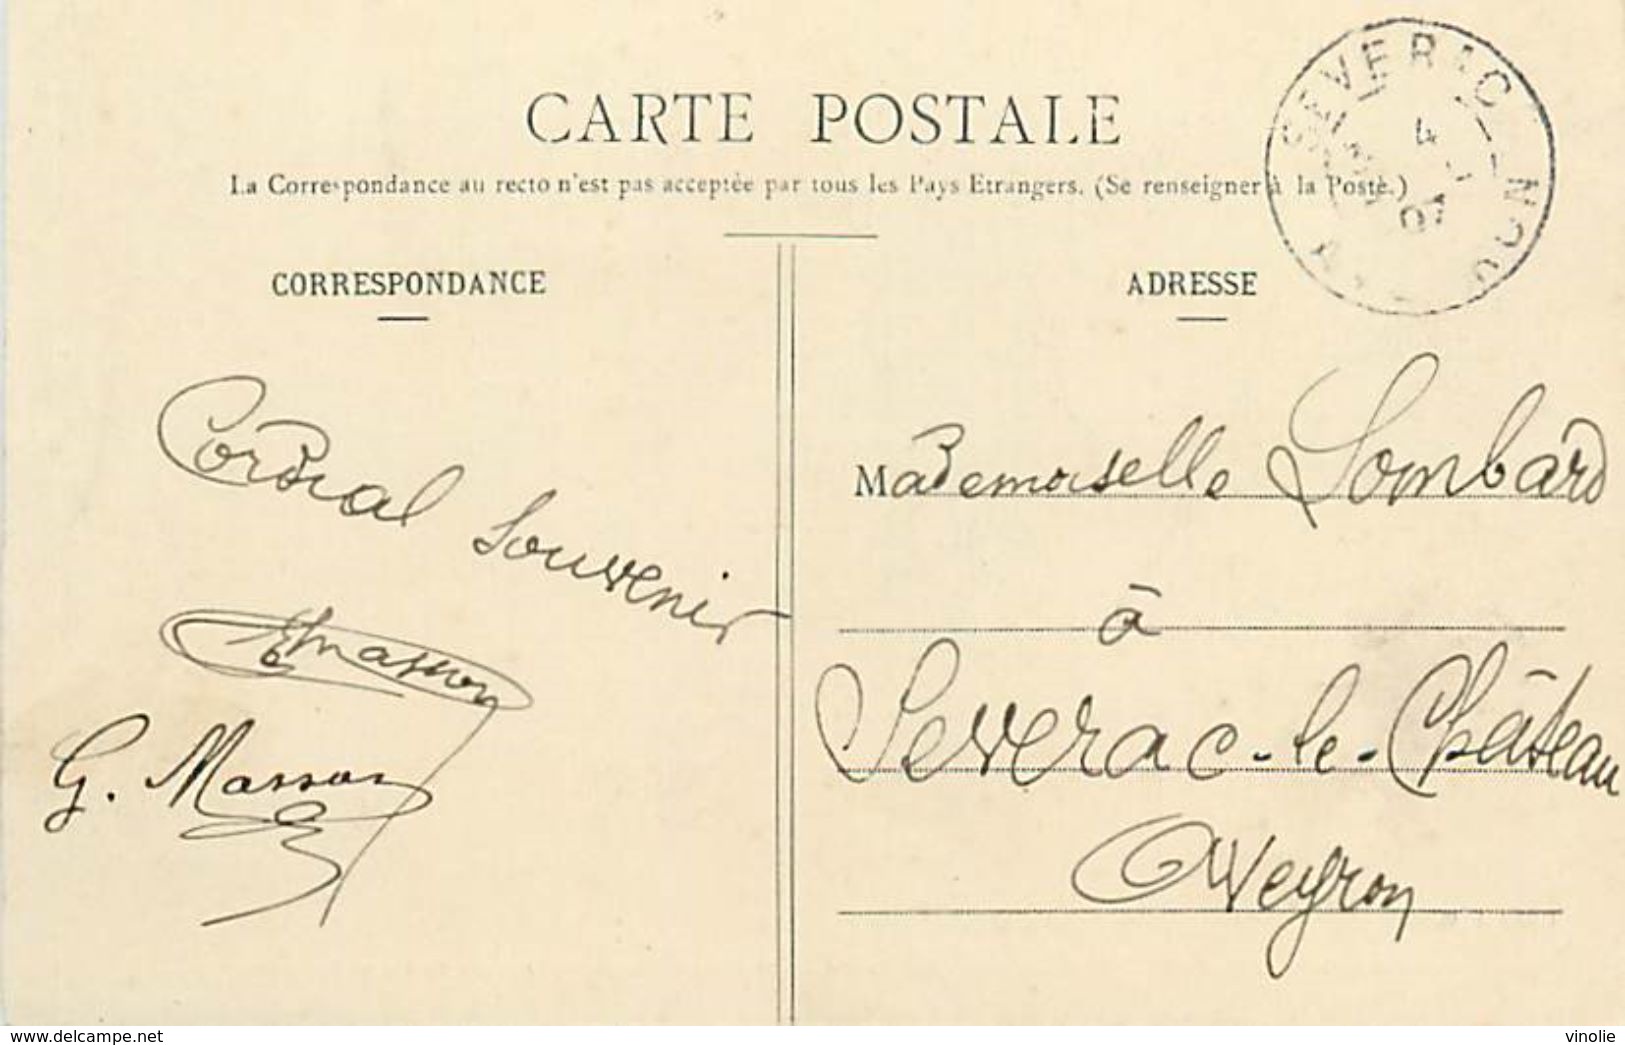 CARTE POSTALE
La Correspondance au recto n'est pas acceptée par tous les Pays Etrangers. (Se renseigner à la Poste.)
SEVERAC
4
07
CORRESPONDANCE
Cordial Souvenir
Masson
G. Masson
ADRESSE
Mademoiselle Lombard
à
Severac-le-Château
Aveyron
www.delcampe.net
vinolie